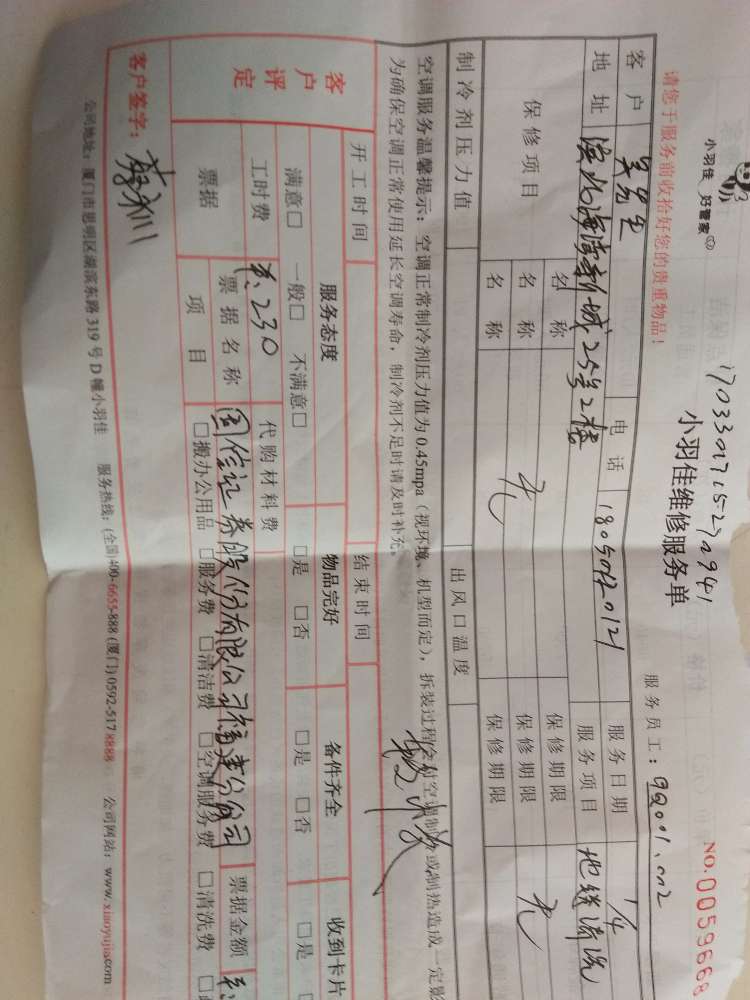 小羽佳 好管家
170330715272941
小羽佳维修服务单
服务员工:
NO.0059668
请您于服务前收拾好您的贵重物品!
客户 吴先生 电话 18050170121 服务日期 1/4
地址 滨北海湾新城25号2楼 服务项目 地毯清洗
保修项目 名称 保修期限
名称 无 保修期限 无
名称 保修期限
制冷剂压力值 出风口温度
空调服务温馨提示:空调正常制冷剂压力值为0.45mpa(视环境、机型而定),拆装过程会对空调制冷或制热造成一定影
为确保空调正常使用延长空调寿命,制冷剂不足时请及时补充。
开工时间 结束时间
客户评定 服务态度 物品完好 备件齐全 收到卡片
满意□ 一般□ 不满意□ □是 □否 □是 □否 □是
工时费 ¥:230 代购材料费
票据 票据名称 国信证券股份有限公司福建分公司 票据金额
项目 □搬办公用品 □服务费 □清洁费 □空调服务费 □清洗费
客户签字:
公司地址:厦门市思明区湖滨东路319号D幢小羽佳 服务热线:(全国)400-6655-888 (厦门) 0592-5178888 公司网站:www.xiaoyujia.com